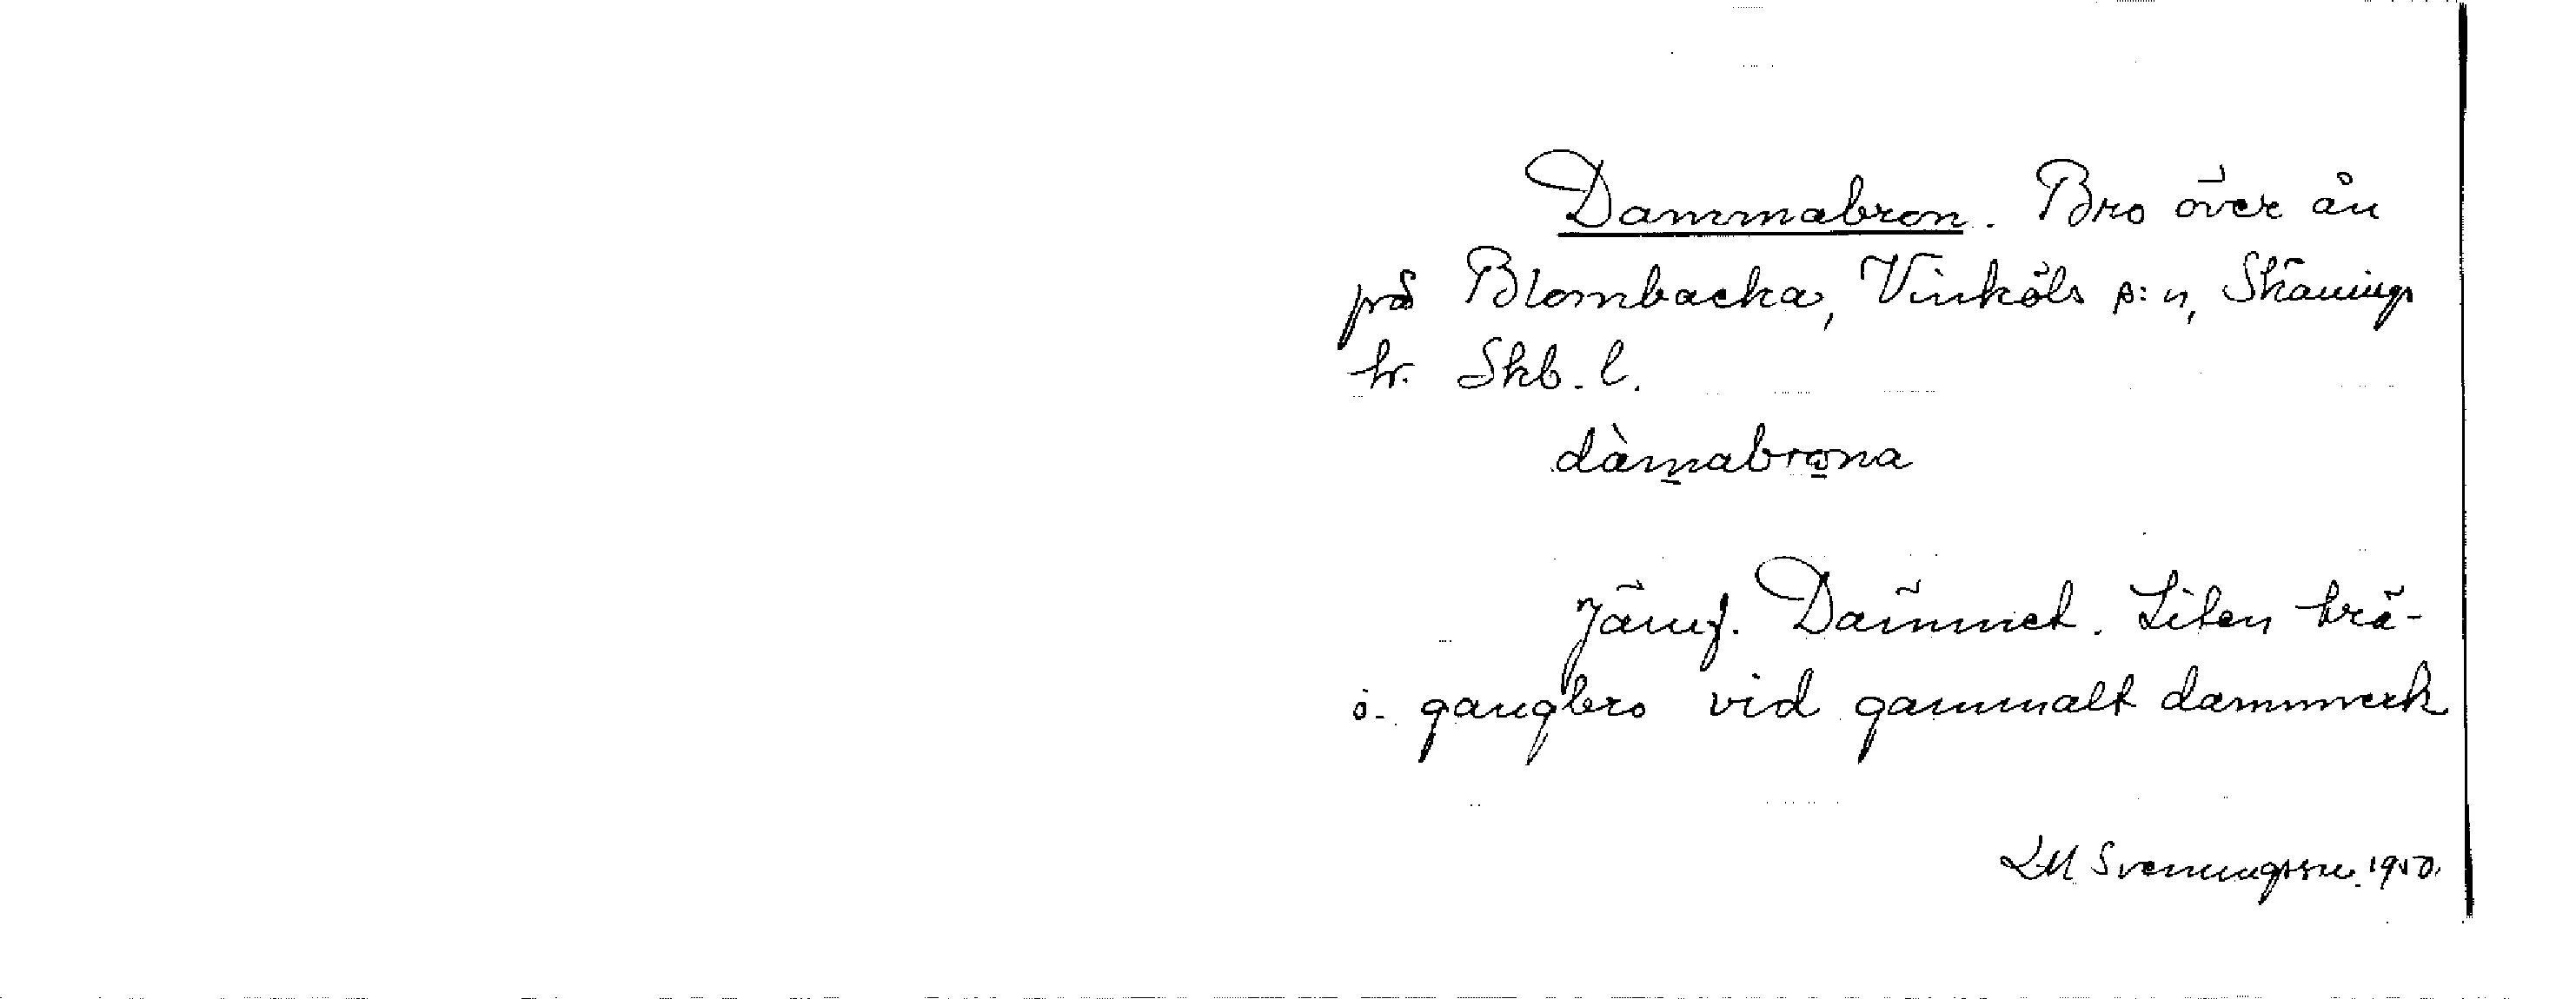 Dammabron. Bro över ån
på Blombacka, Vinköls s:n, Skånings
hr. Skb. l.
dàmabrona
Jämf. Dämmet. Liten trä-
o. gangbro vid gammalt dammverk
LM Svenungsson. 1950.